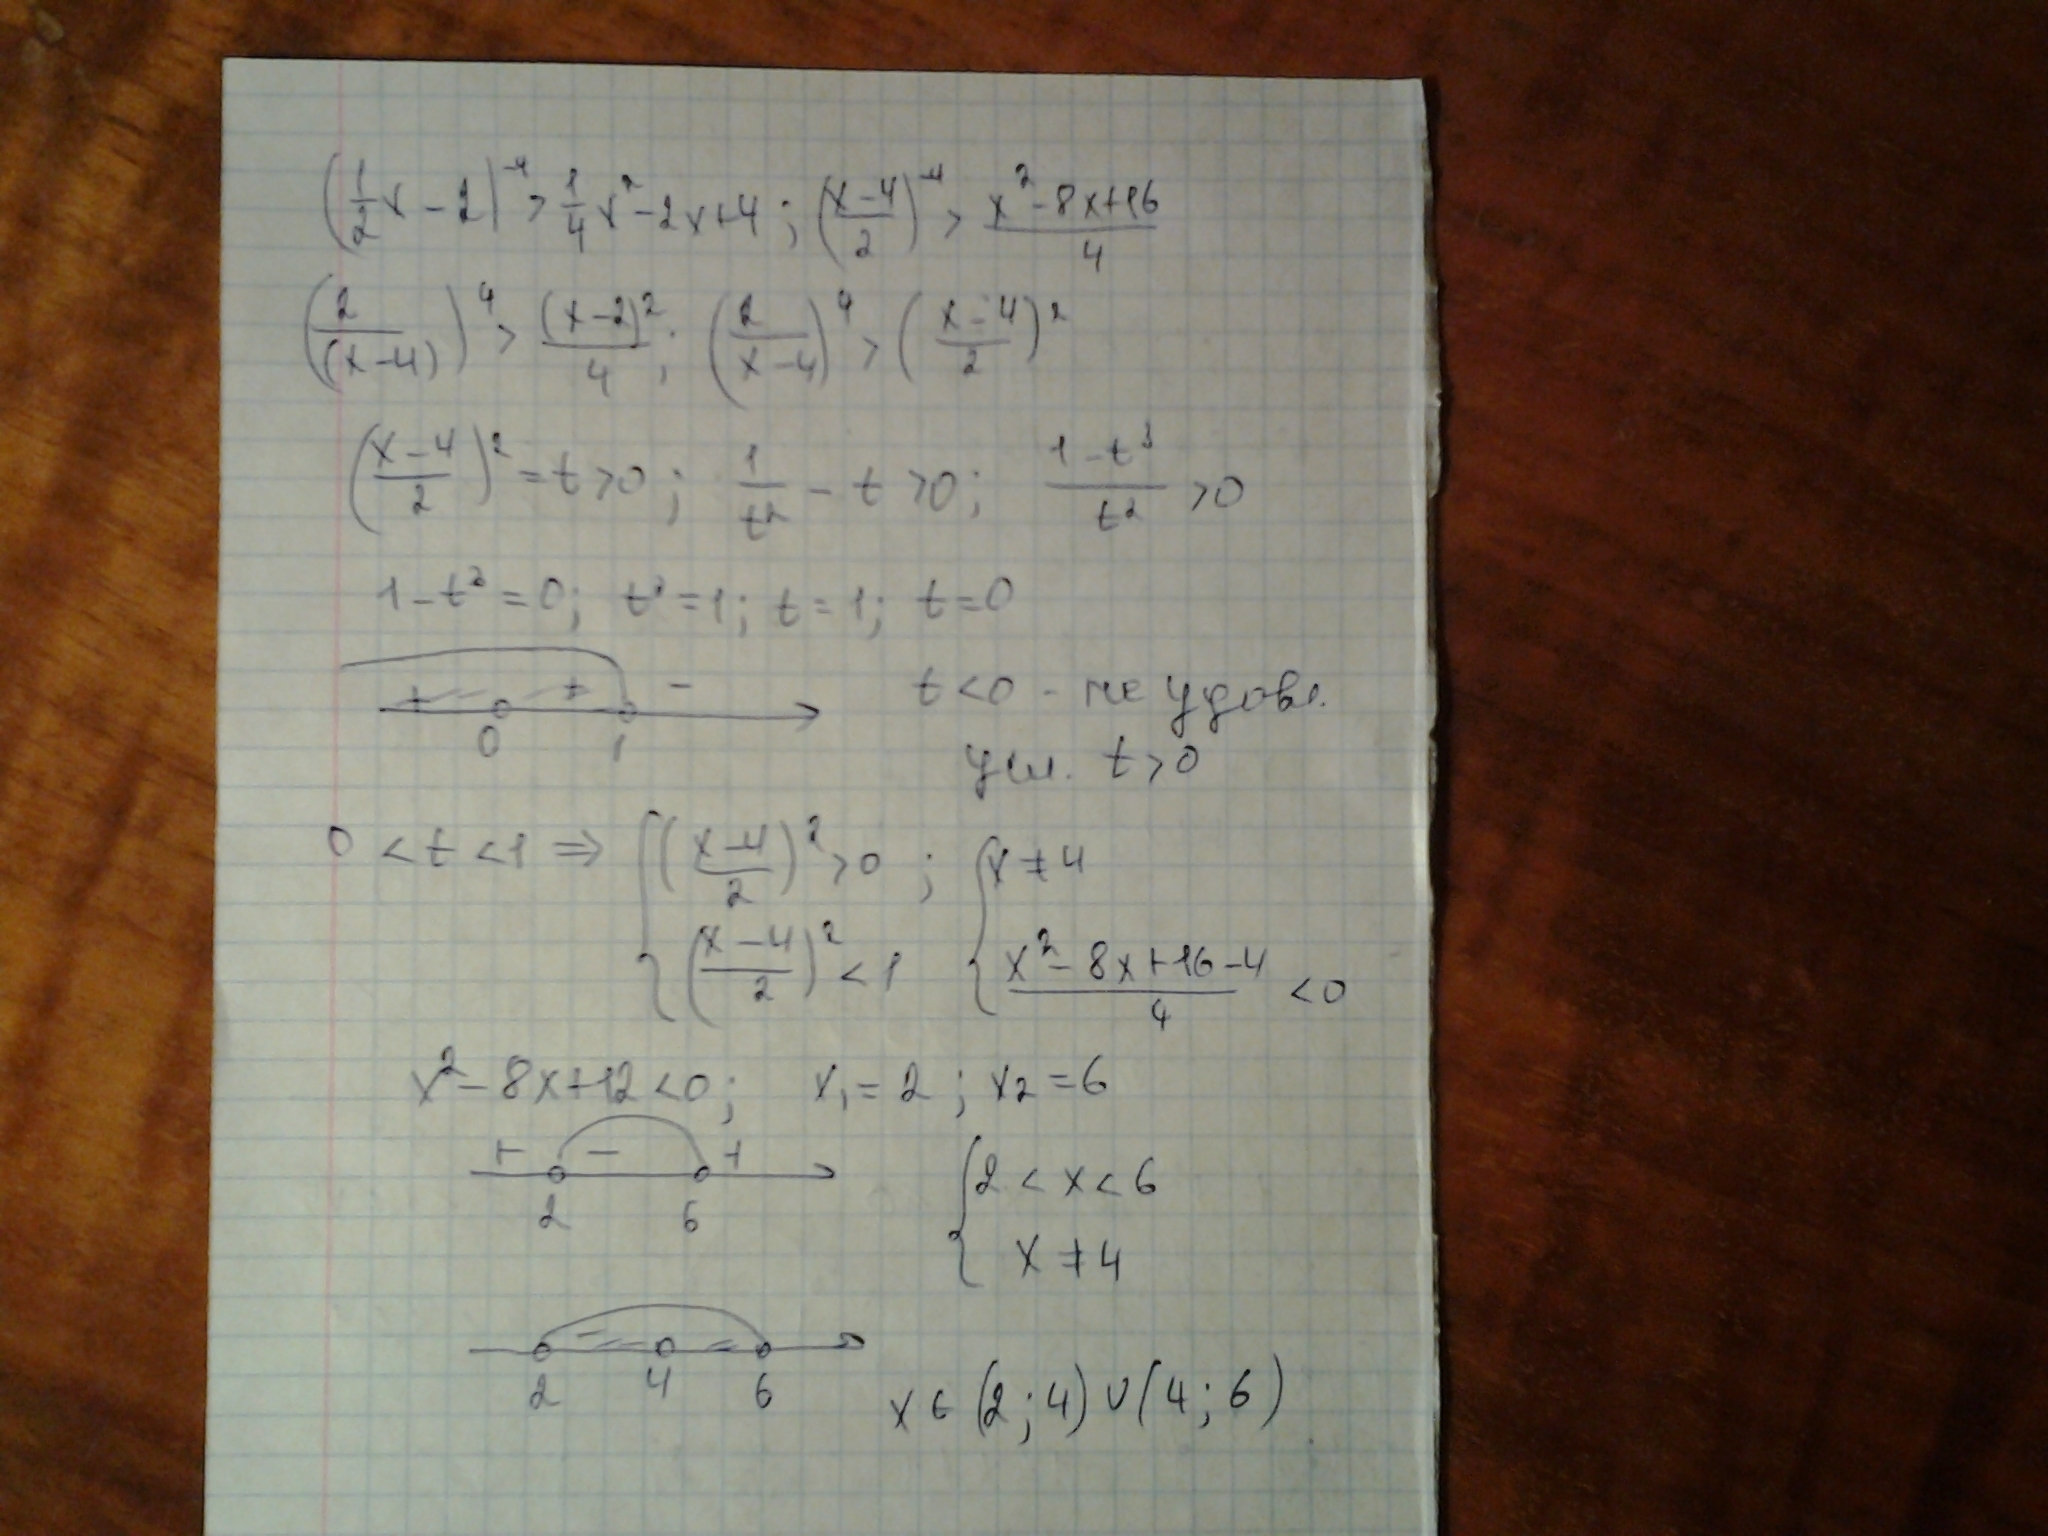 (1/2 x - 2)^-4 > 1/4 x² - 2x + 4 ; ((x-4)/2)^-4 > (x² - 8x + 16)/4
(2/(x-4))^4 > (x-2)²/4 ; (2/(x-4))^4 > ((x-4)/2)²
((x-4)/2)² = t > 0 ; 1/t² - t > 0 ; (1 - t³)/t² > 0
1 - t³ = 0 ; t³ = 1 ; t = 1 ; t = 0
+ + -
0 1
t < 0 - не удовл.
усл. t > 0
0 < t < 1 ⇒ { ((x-4)/2)² > 0 ; { x ≠ 4
((x-4)/2)² < 1 (x² - 8x + 16 - 4)/4 < 0
x² - 8x + 12 < 0 ; x₁ = 2 ; x₂ = 6
+ - +
2 6
{ 2 < x < 6
x ≠ 4
2 4 6
x ∈ (2 ; 4) ∪ (4 ; 6)